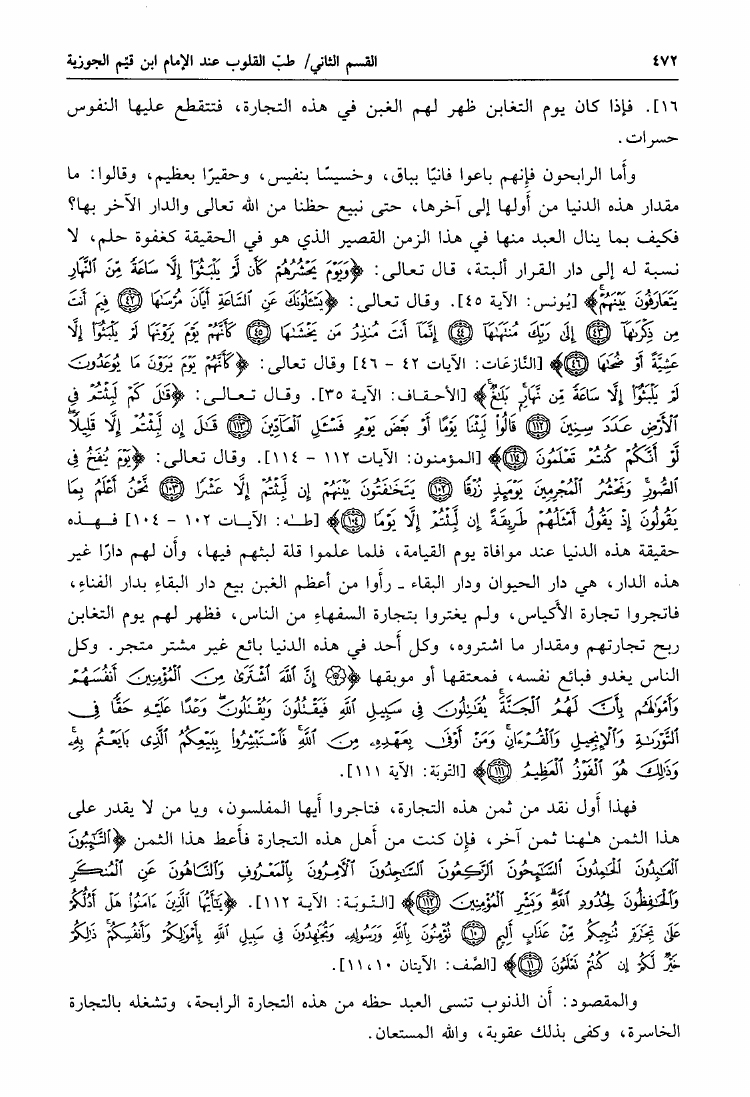 ٤٧٢ القسم الثاني/ طبّ القلوب عند الإمام ابن قيّم الجوزية
١٦]. فإذا كان يوم التغابن ظهر لهم الغبن في هذه التجارة، فتتقطع عليها النفوس
حسرات.
وأما الرابحون فإنهم باعوا فانيًا بباق، وخسيسًا بنفيس، وحقيرًا بعظيم، وقالوا: ما
مقدار هذه الدنيا من أولها إلى آخرها، حتى نبيع حظنا من الله تعالى والدار الآخر بها؟
فكيف بما ينال العبد منها في هذا الزمن القصير الذي هو في الحقيقة كغفوة حلم، لا
نسبة له إلى دار القرار ألبتة، قال تعالى: ﴿وَيَوْمَ يَحْشُرُهُمْ كَأَن لَّمْ يَلْبَثُوٓا۟ إِلَّا سَاعَةً مِّنَ ٱلنَّهَارِ
يَتَعَارَفُونَ بَيْنَهُمْ﴾ [يُونس: الآية ٤٥]. وقال تعالى: ﴿يَسْـَٔلُونَكَ عَنِ ٱلسَّاعَةِ أَيَّانَ مُرْسَىٰهَا ٤٢ فِيمَ أَنتَ
مِن ذِكْرَىٰهَآ ٤٣ إِلَىٰ رَبِّكَ مُنتَهَىٰهَآ ٤٤ إِنَّمَآ أَنتَ مُنذِرُ مَن يَخْشَىٰهَا ٤٥ كَأَنَّهُمْ يَوْمَ يَرَوْنَهَا لَمْ يَلْبَثُوٓا۟ إِلَّا
عَشِيَّةً أَوْ ضُحَىٰهَا ٤٦﴾ [النَّازعَات: الآيات ٤٢ - ٤٦] وقال تعالى: ﴿كَأَنَّهُمْ يَوْمَ يَرَوْنَ مَا يُوعَدُونَ
لَمْ يَلْبَثُوٓا۟ إِلَّا سَاعَةً مِّن نَّهَارٍۭ بَلَـٰغٌ﴾ [الأحقاف: الآية ٣٥]. وقال تعالى: ﴿قَـٰلَ كَمْ لَبِثْتُمْ فِى
ٱلْأَرْضِ عَدَدَ سِنِينَ ١١٢ قَالُوا۟ لَبِثْنَا يَوْمًا أَوْ بَعْضَ يَوْمٍ فَسْـَٔلِ ٱلْعَآدِّينَ ١١٣ قَـٰلَ إِن لَّبِثْتُمْ إِلَّا قَلِيلًا
لَّوْ أَنَّكُمْ كُنتُمْ تَعْلَمُونَ ١١٤﴾ [المؤمنون: الآيات ١١٢ - ١١٤]. وقال تعالى: ﴿يَوْمَ يُنفَخُ فِى
ٱلصُّورِ وَنَحْشُرُ ٱلْمُجْرِمِينَ يَوْمَئِذٍ زُرْقًا ١٠٢ يَتَخَـٰفَتُونَ بَيْنَهُمْ إِن لَّبِثْتُمْ إِلَّا عَشْرًا ١٠٣ نَّحْنُ أَعْلَمُ بِمَا
يَقُولُونَ إِذْ يَقُولُ أَمْثَلُهُمْ طَرِيقَةً إِن لَّبِثْتُمْ إِلَّا يَوْمًا ١٠٤﴾ [طـه: الآيـات ١٠٢ - ١٠٤] فـهـذه
حقيقة هذه الدنيا عند موافاة يوم القيامة، فلما علموا قلة لبثهم فيها، وأن لهم دارًا غير
هذه الدار، هي دار الحيوان ودار البقاء ـ رأوا من أعظم الغبن بيع دار البقاء بدار الفناء،
فاتجروا تجارة الأكياس، ولم يغتروا بتجارة السفهاء من الناس، فظهر لهم يوم التغابن
ربح تجارتهم ومقدار ما اشتروه، وكل أحد في هذه الدنيا بائع غير مشتر متجر. وكل
الناس يغدو فبائع نفسه، فمعتقها أو موبقها ﴿إِنَّ ٱللَّهَ ٱشْتَرَىٰ مِنَ ٱلْمُؤْمِنِينَ أَنفُسَهُمْ
وَأَمْوَٰلَهُم بِأَنَّ لَهُمُ ٱلْجَنَّةَ يُقَـٰتِلُونَ فِى سَبِيلِ ٱللَّهِ فَيَقْتُلُونَ وَيُقْتَلُونَ وَعْدًا عَلَيْهِ حَقًّا فِى
ٱلتَّوْرَىٰةِ وَٱلْإِنجِيلِ وَٱلْقُرْءَانِ وَمَنْ أَوْفَىٰ بِعَهْدِهِۦ مِنَ ٱللَّهِ فَٱسْتَبْشِرُوا۟ بِبَيْعِكُمُ ٱلَّذِى بَايَعْتُم بِهِۦ
وَذَٰلِكَ هُوَ ٱلْفَوْزُ ٱلْعَظِيمُ ١١١﴾ [التّوبَة: الآية ١١١].
فهذا أول نقد من ثمن هذه التجارة، فتاجروا أيها المفلسون، ويا من لا يقدر على
هذا الثمن هٰهنا ثمن آخر، فإن كنت من أهل هذه التجارة فأعط هذا الثمن ﴿ٱلتَّـٰٓئِبُونَ
ٱلْعَـٰبِدُونَ ٱلْحَـٰمِدُونَ ٱلسَّـٰٓئِحُونَ ٱلرَّٰكِعُونَ ٱلسَّـٰجِدُونَ ٱلْـَٔامِرُونَ بِٱلْمَعْرُوفِ وَٱلنَّاهُونَ عَنِ ٱلْمُنكَرِ
وَٱلْحَـٰفِظُونَ لِحُدُودِ ٱللَّهِ وَبَشِّرِ ٱلْمُؤْمِنِينَ ١١٢﴾ [التّوبَة: الآية ١١٢]. ﴿يَـٰٓأَيُّهَا ٱلَّذِينَ ءَامَنُوا۟ هَلْ أَدُلُّكُمْ
عَلَىٰ تِجَـٰرَةٍ تُنجِيكُم مِّنْ عَذَابٍ أَلِيمٍ ١٠ تُؤْمِنُونَ بِٱللَّهِ وَرَسُولِهِۦ وَتُجَـٰهِدُونَ فِى سَبِيلِ ٱللَّهِ بِأَمْوَٰلِكُمْ وَأَنفُسِكُمْ ذَٰلِكُمْ
خَيْرٌ لَّكُمْ إِن كُنتُمْ تَعْلَمُونَ ١١﴾ [الصَّف: الآيتان ١٠،١١].
والمقصود: أن الذنوب تنسى العبد حظه من هذه التجارة الرابحة، وتشغله بالتجارة
الخاسرة، وكفى بذلك عقوبة، والله المستعان.